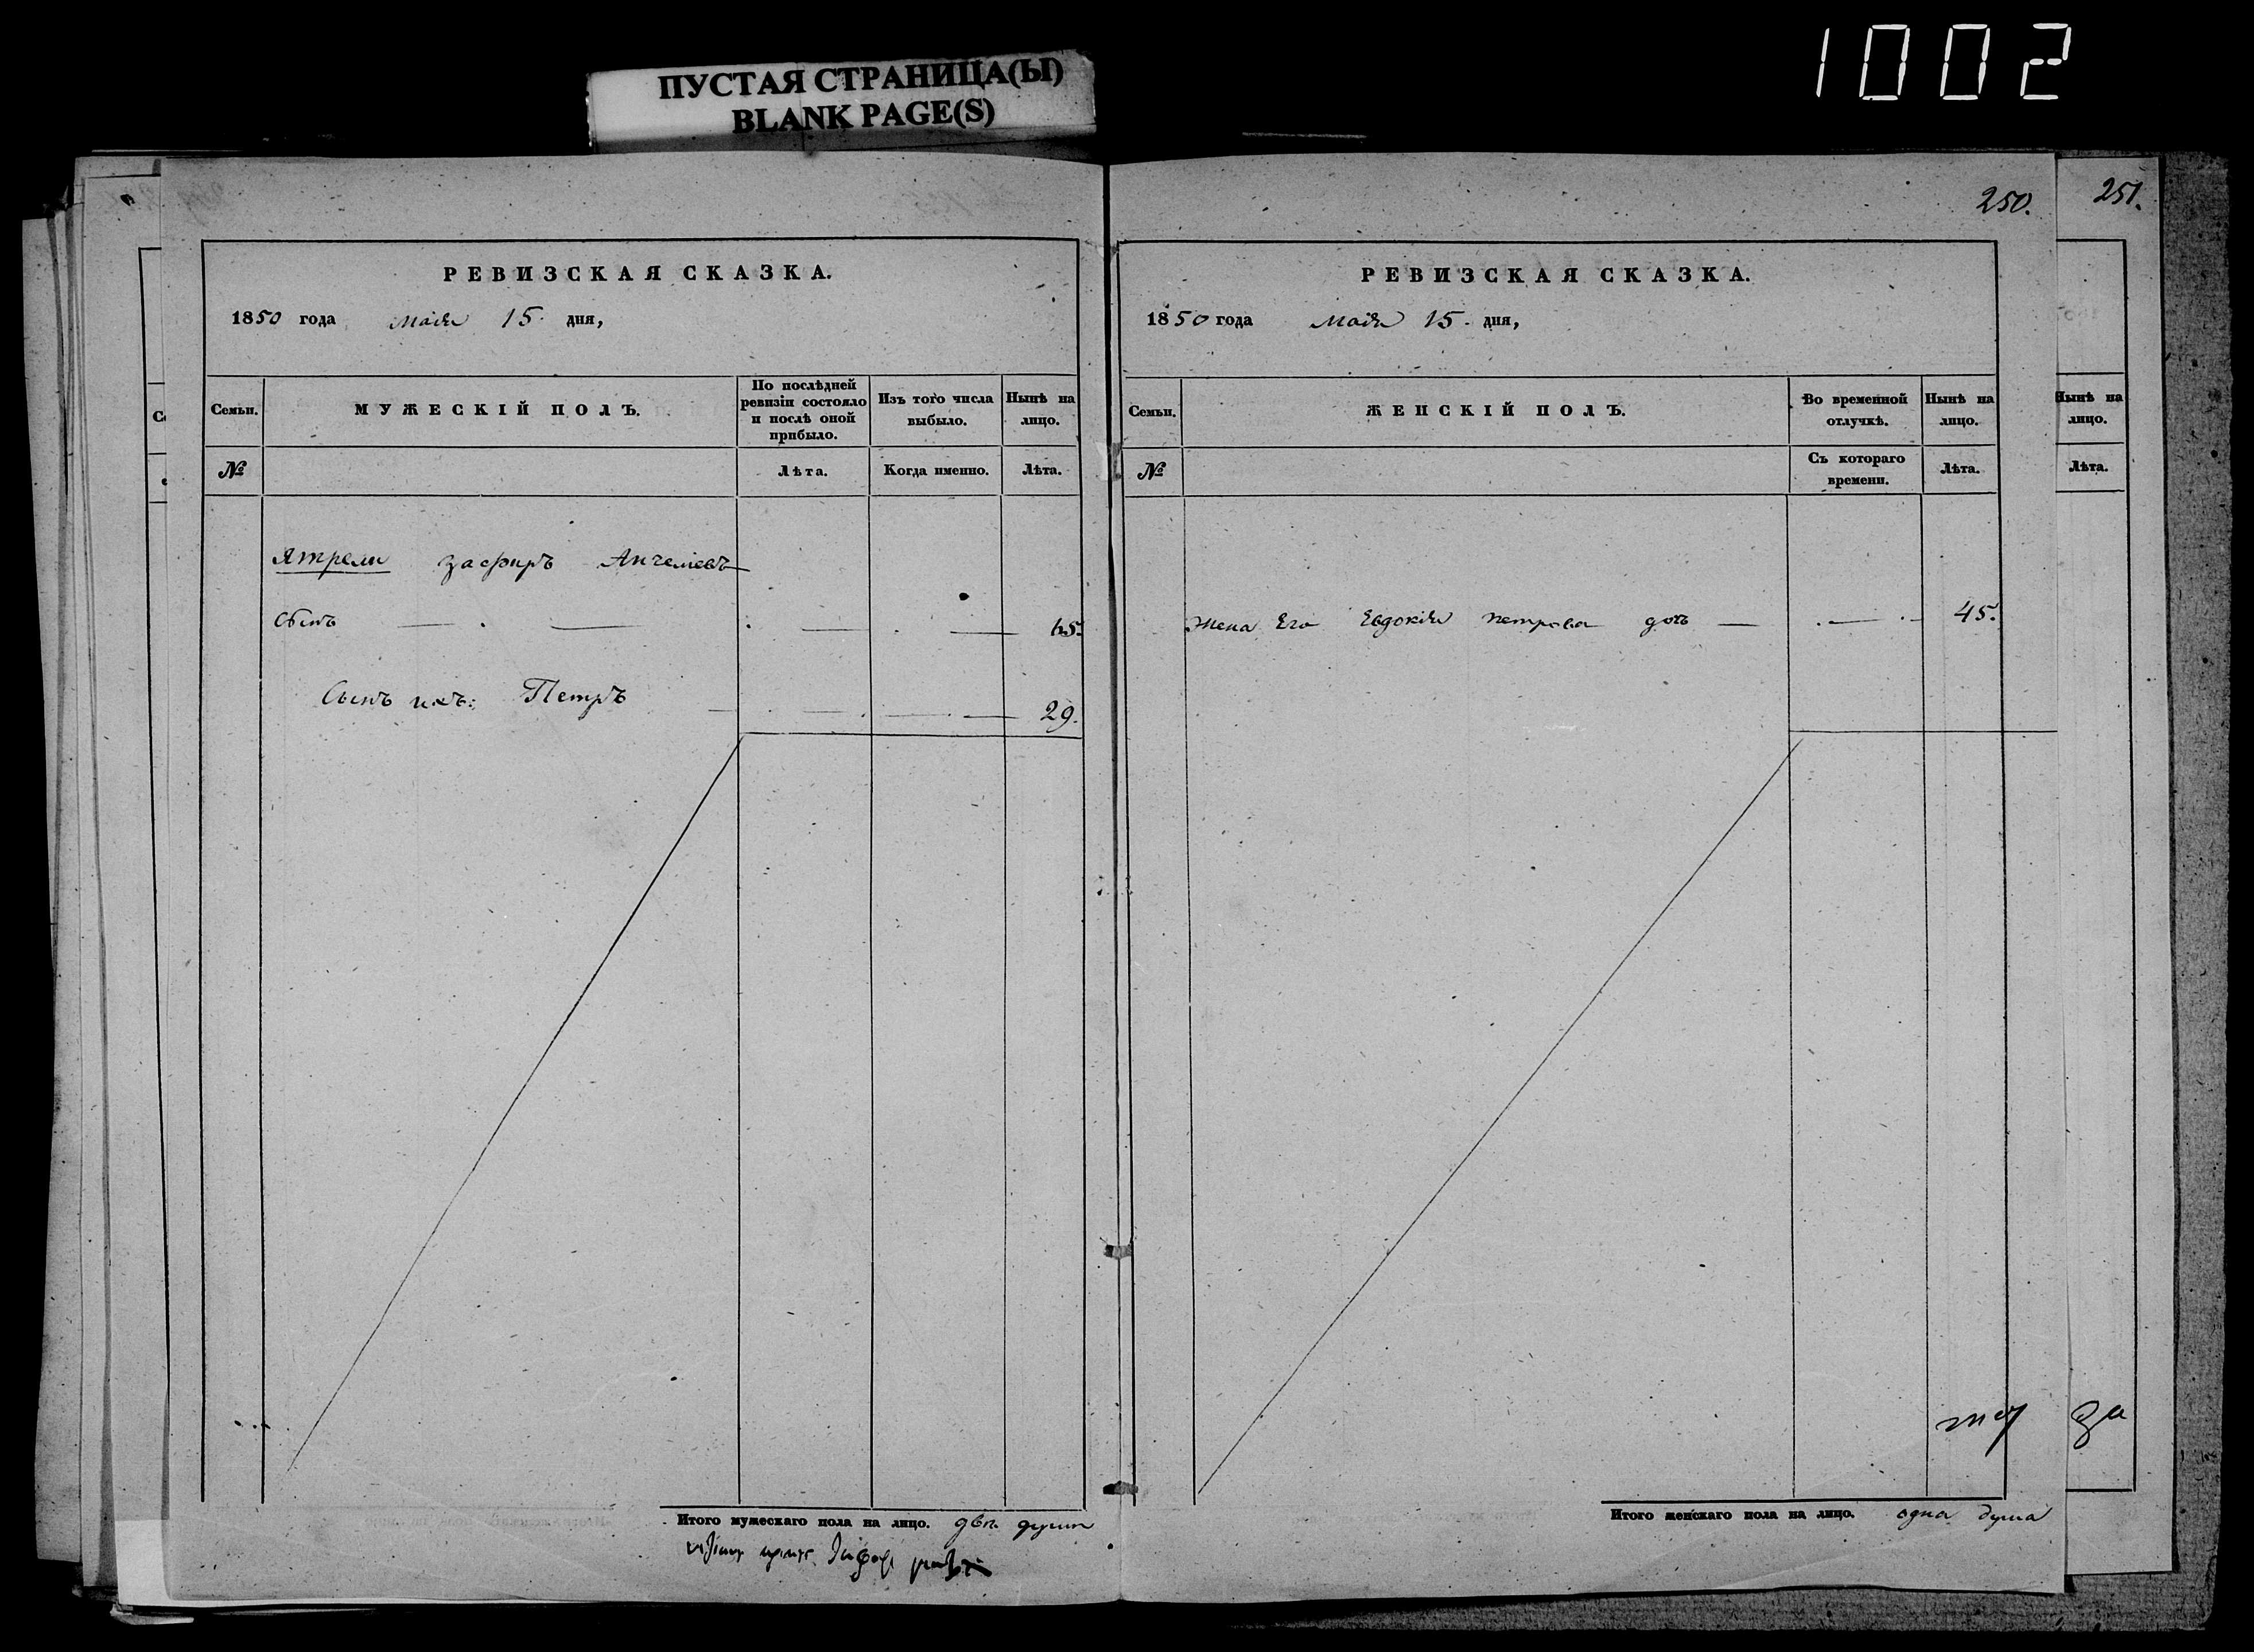 1002
ПУСТАЯ СТРАНИЦА(Ы)
BLANK PAGE(S)
РЕВИЗСКАЯ СКАЗКА.
1850 года Маія 15 дня,
Семьи.
МУЖЕСКІЙ ПОЛЪ.
По послѣдней ревизіи состояло и послѣ оной прибыло.
Изъ того числа выбыло.
Нынѣ на лицо.
№
Лѣта.
Когда именно.
Лѣта.
Ятрели Зафиръ Ангелiевъ
сынъ 65.
Сынъ ихъ: Петръ 29.
Итого мужескаго пола на лицо. двѣ души
250.
РЕВИЗСКАЯ СКАЗКА.
1850 года Маія 15. дня,
Семьи.
ЖЕНСКІЙ ПОЛЪ.
Во временной отлучкѣ.
Нынѣ на лицо.
№
Съ котораго времени.
Лѣта.
Жена Его Евдокія Петрова дочь 45.
Итого женскаго пола на лицо. одна душа
251.
Нынѣ на лицо.
Лѣта.